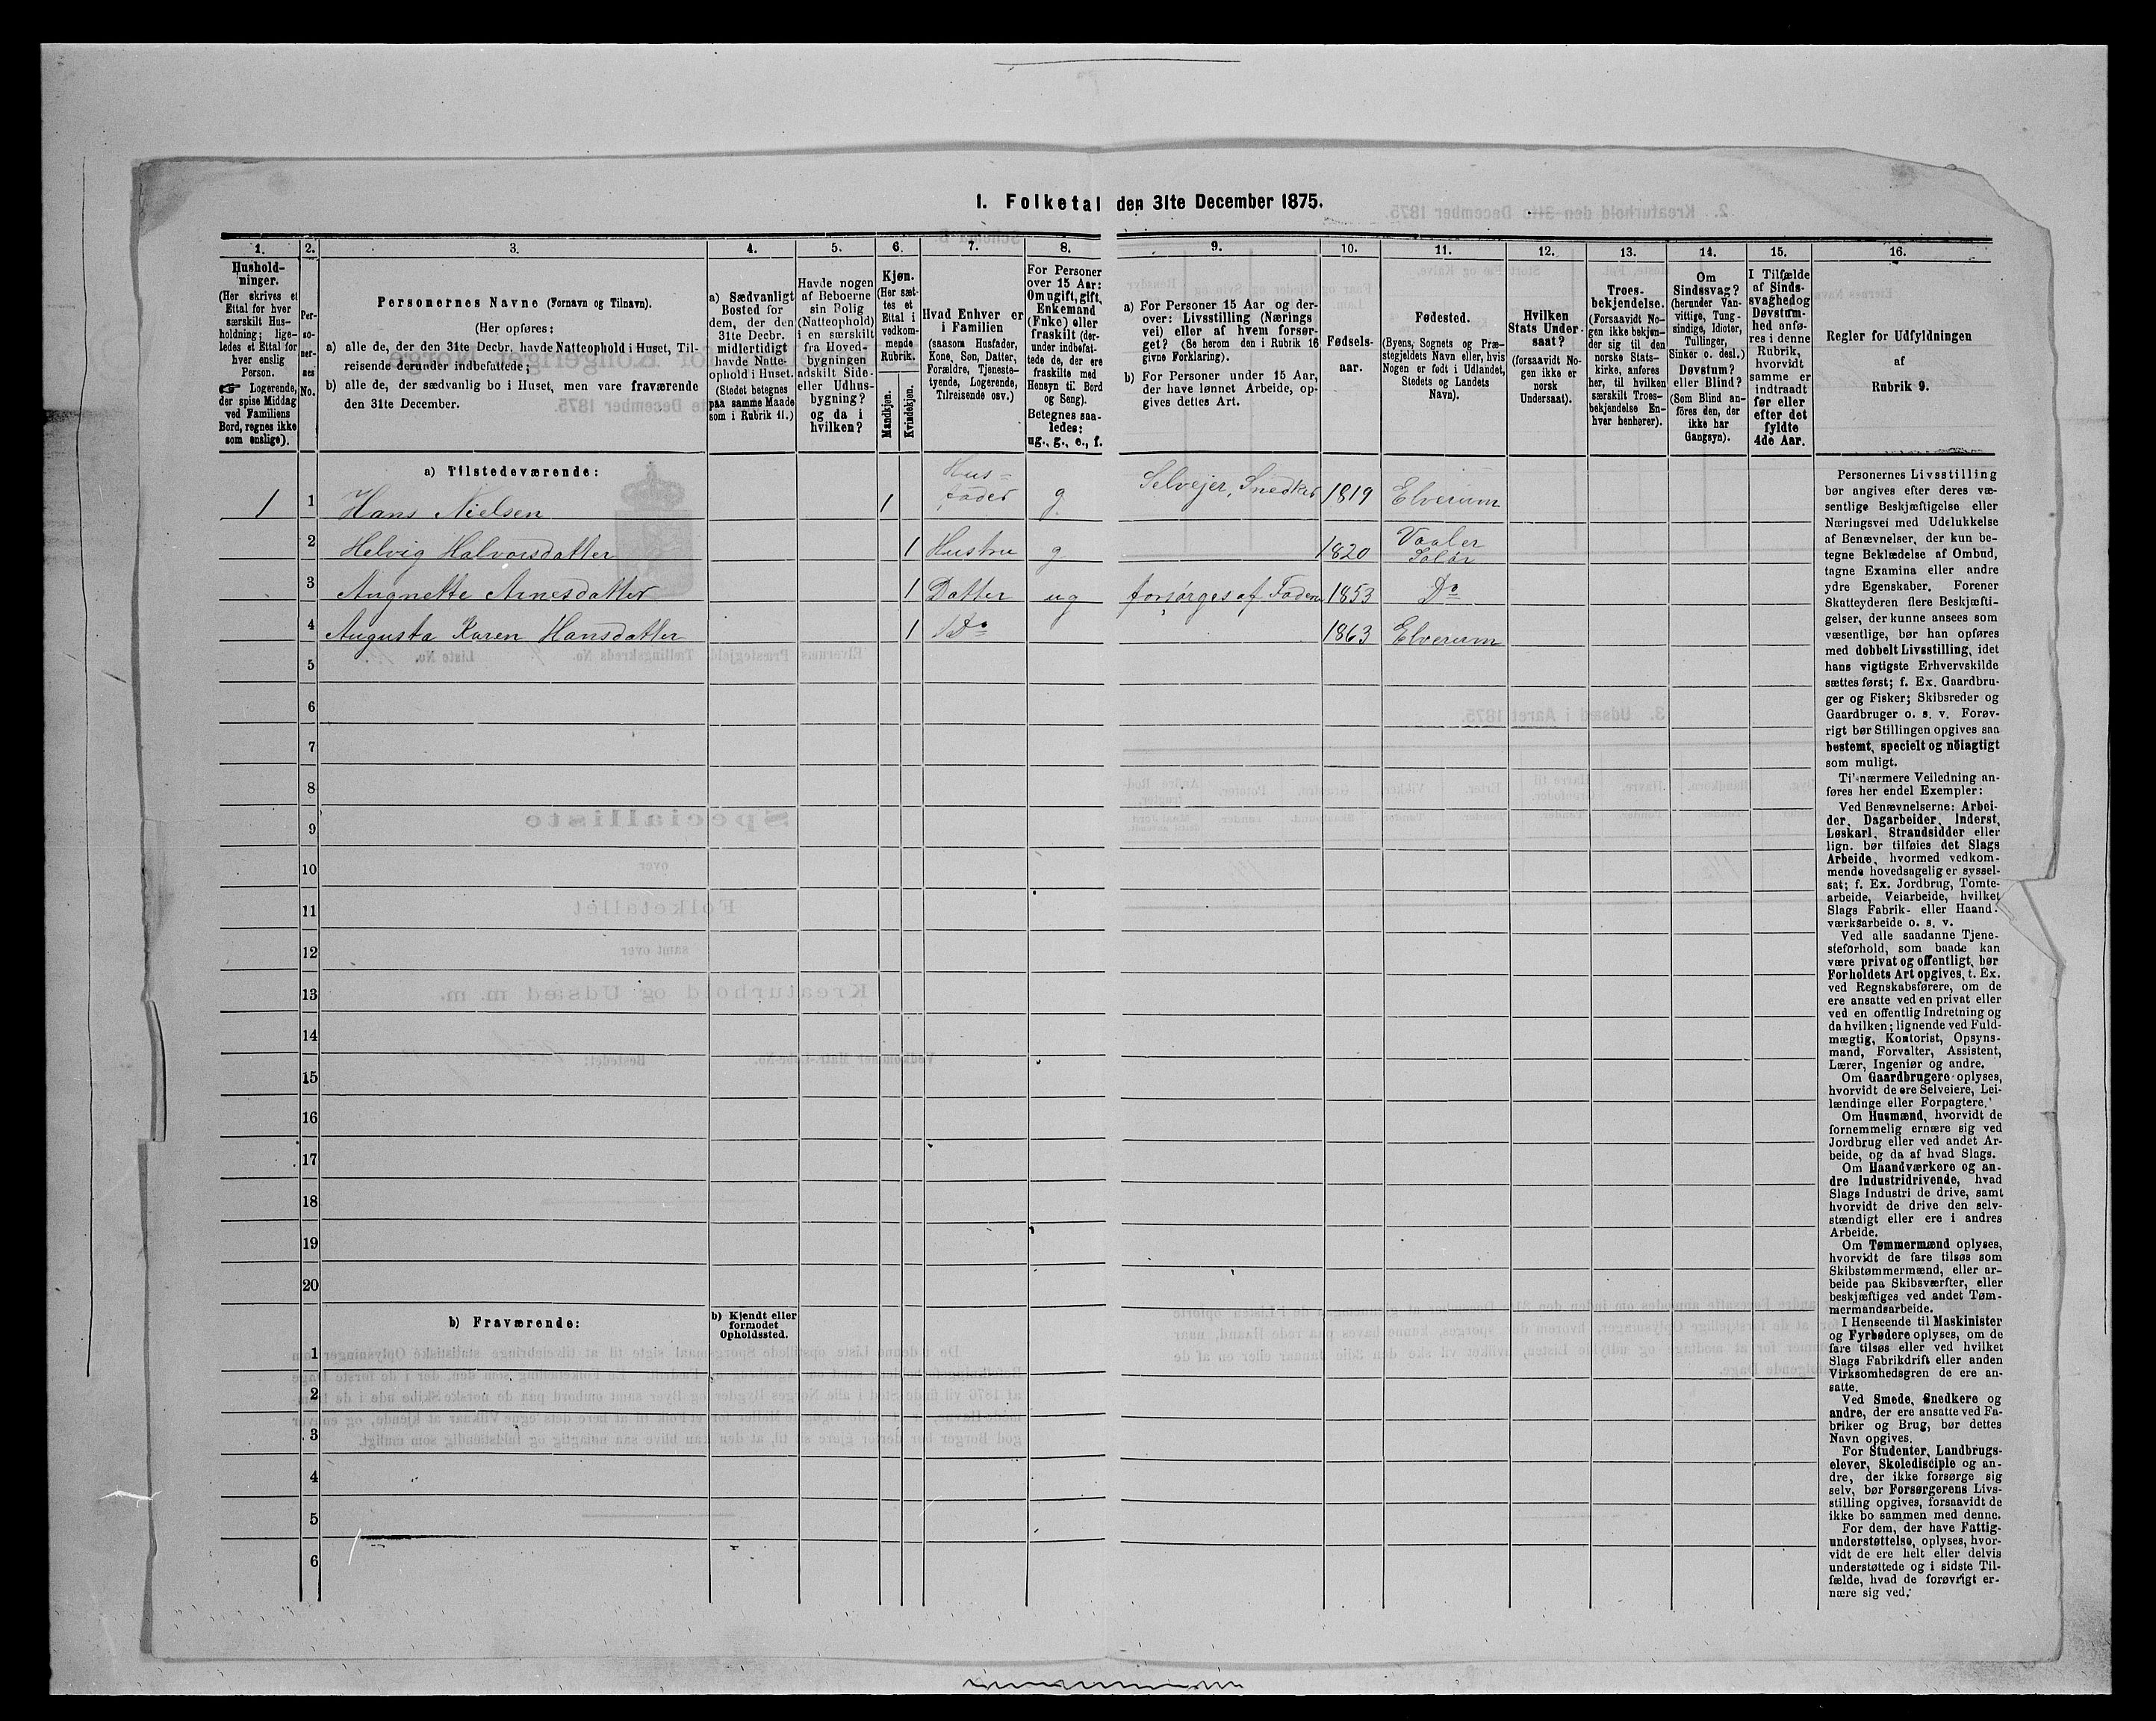 1. Folketal den 31te December 1875.
1.
2.
3.
4.
5.
6.
7.
8.
9.
10.
11.
12.
13.
14.
15.
16.
Hushold-
ninger.
(Her skrives et
Ettal for hver
særskilt Hus-
holdning; lige-
ledes et Ettal for
hver enslig
Person.
☞ Logerende,
der spise Middag
ved Familiens
Bord, regnes ikke
som enslige).
Per-
so-
ner-
nes
No.
Personernes Navne (Fornavn og Tilnavn).
(Her opføres:
a) alle de, der den 31te Decbr. havde Natteophold i Huset, Til-
reisende derunder indbefattede;
b) alle de, der sædvanlig bo i Huset, men vare fraværende
den 31te December.
a) Sædvanligt
Bosted for
dem, der den
31te Decbr.
midlertidigt
havde Natte-
ophold i Huset.
(Stedet betegnes
paa samme Maade
som i Rubrik 11.)
Havde nogen
af Beboerne
sin Bolig
(Natteophold)
i en særskilt
fra Hoved-
bygningen
adskilt Side-
eller Udhus-
bygning?
og da i
hvilken?
Kjøn.
(Her sæt-
tes et
Ettal i
vedkom-
mende
Rubrik.
Mandkjøn.
Kvindekjøn.
Hvad Enhver er
i Familien
(saasom Husfader,
Kone, Søn, Datter,
Forældre, Tjeneste-
tyende, Logerende,
Tilreisende osv.)
For Personer
over 15 Aar:
Om ugift, gift,
Enkemand
(Enke) eller
fraskilt (der-
under indbefat-
tede de, der ere
fraskilte med
Hensyn til Bord
og Seng).
Betegnes saa-
ledes:
ug., g., e., f.
a) For Personer 15 Aar og der-
over: Livsstilling (Nærings
vei) eller af hvem forsør-
get? (Se herom den i Rubrik 16
givne Forklaring).
b) For Personer under 15 Aar,
der have lønnet Arbeide, op-
gives dettes Art.
Fødsels-
aar.
Fødested.
(Byens, Sognets og Præ-
stegjeldets Navn eller, hvis
Nogen er født i Udlandet,
Stedets og Landets
Navn).
Hvilken
Stats Under-
saat?
(forsaavidt No-
gen ikke er
norsk
Undersaat).
Troes-
bekjendelse.
(Forsaavidt No-
gen ikke bekjen-
der sig til den
norske Stats-
kirke, anføres
her, til hvilken
særskilt Troes-
bekjendelse En-
hver henhører).
Om
Sindssvag?
(herunder Van-
vittige, Tung-
sindige, Idioter,
Tullinger,
Sinker o. desl.)
Døvstum?
eller Blind?
(Som Blind an-
føres den, der
ikke har
Gangsyn).
I Tilfælde
af Sinds-
svaghed og
Døvstum-
hed anfø-
res i denne
Rubrik,
hvorvidt
samme er
indtraadt
før eller
efter det
fyldte
4de Aar.
Regler for Udfyldningen
af
Rubrik 9.
a) Tilstedeværende:
1 1 Hans Nielsen 1 Hus=
fader g Selvejer, Snedker 1819 Elverum
2 Helvig Halvorsdatter 1 Hustru g 1820 Vaaler
Solør
3 Augnette Arnesdatter 1 Datter ug forsørges af Faderen 1853 Do
4 Augusta Karen Hansdatter 1 Do 1863 Elverum
5
6
7
8
9
10
11
12
13
14
15
16
17
18
19
20
b) Fraværende:
b) Kjendt eller
formodet
Opholdssted.
1
2
3
4
5
6
Personernes Livsstilling
bør angives efter deres væ-
sentlige Beskjæftigelse eller
Næringsvei med Udelukkelse
af Benævnelser, der kun be-
tegne Beklædelse af Ombud,
tagne Examina eller andre
ydre Egenskaber. Forener
Skatteyderen flere Beskjæfti-
gelser, der kunne ansees som
væsentlige, bør han opføres
med dobbelt Livsstilling, idet
hans vigtigste Erhvervskilde
sættes først; f. Ex. Gaardbru-
ger og Fisker; Skibsreder og
Gaardbruger o. s. v. Forøv-
rigt bør Stillingen opgives saa
bestemt, specielt og nöiagtigt
som muligt.
Til nærmere Veiledning an-
føres her endel Exempler:
Ved Benævnelserne: Arbei-
der, Dagarbeider, Inderst,
Løskarl, Strandsidder eller
lign. bør tilføies det Slags
Arbeide, hvormed vedkom-
mende hovedsagelig er syssel-
sat; f. Ex. Jordbrug, Tomte-
arbeide, Veiarbeide, hvilket
Slags Fabrik- eller Haand-
værksarbeide o. s. v.
Ved alle saadanne Tjene-
steforhold, som baade kan
være privat og offentligt, bør
Forholdets Art opgives, t. Ex.
ved Regnskabsførere, om de
ere ansatte ved en privat eller
ved en offentlig Indretning og
da hvilken; lignende ved Fuld-
mægtig, Kontorist, Opsyns-
mand, Forvalter, Assistent,
Lærer, Ingeniør og andre.
Om Gaardbrugere oplyses,
hvorvidt de ere Selveiere, Lei-
lændinge eller Forpagtere.
Om Husmænd, hvorvidt de
fornemmelig ernære sig ved
Jordbrug eller ved andet Ar-
beide, og da af hvad Slags.
Om Haandværkere og an-
dre Industridrivende, hvad
Slags Industri de drive, samt
hvorvidt de drive den selv-
stændigt eller ere i andres
Arbeide.
Om Tømmermænd oplyses,
hvorvidt de fare tilsøs som
Skibstømmermænd, eller ar-
beide paa Skibsværfter, eller
beskjæftiges ved andet Tøm-
mermandsarbeide.
I Henseende til Maskinister
og Fyrbødere oplyses, om de
fare tilsøs eller ved hvilket
Slags Fabrikdrift eller anden
Virksomhedsgren de ere an-
satte.
Ved Smede, Snedkere og
andre, der ere ansatte ved Fa-
briker og Brug, bør dettes
Navn opgives.
For Studenter, Landbrugs-
elever, Skoledisciple og an-
dre, der ikke forsørge sig
selv, bør Forsørgerens Livs-
stilling opgives, forsaavidt de
ikke bo sammen med denne.
For dem, der have Fattig-
understøttelse, oplyses, hvor-
vidt de ere helt eller delvis
understøttede og i sidste Til-
fælde, hvad de forøvrigt er-
nære sig ved.